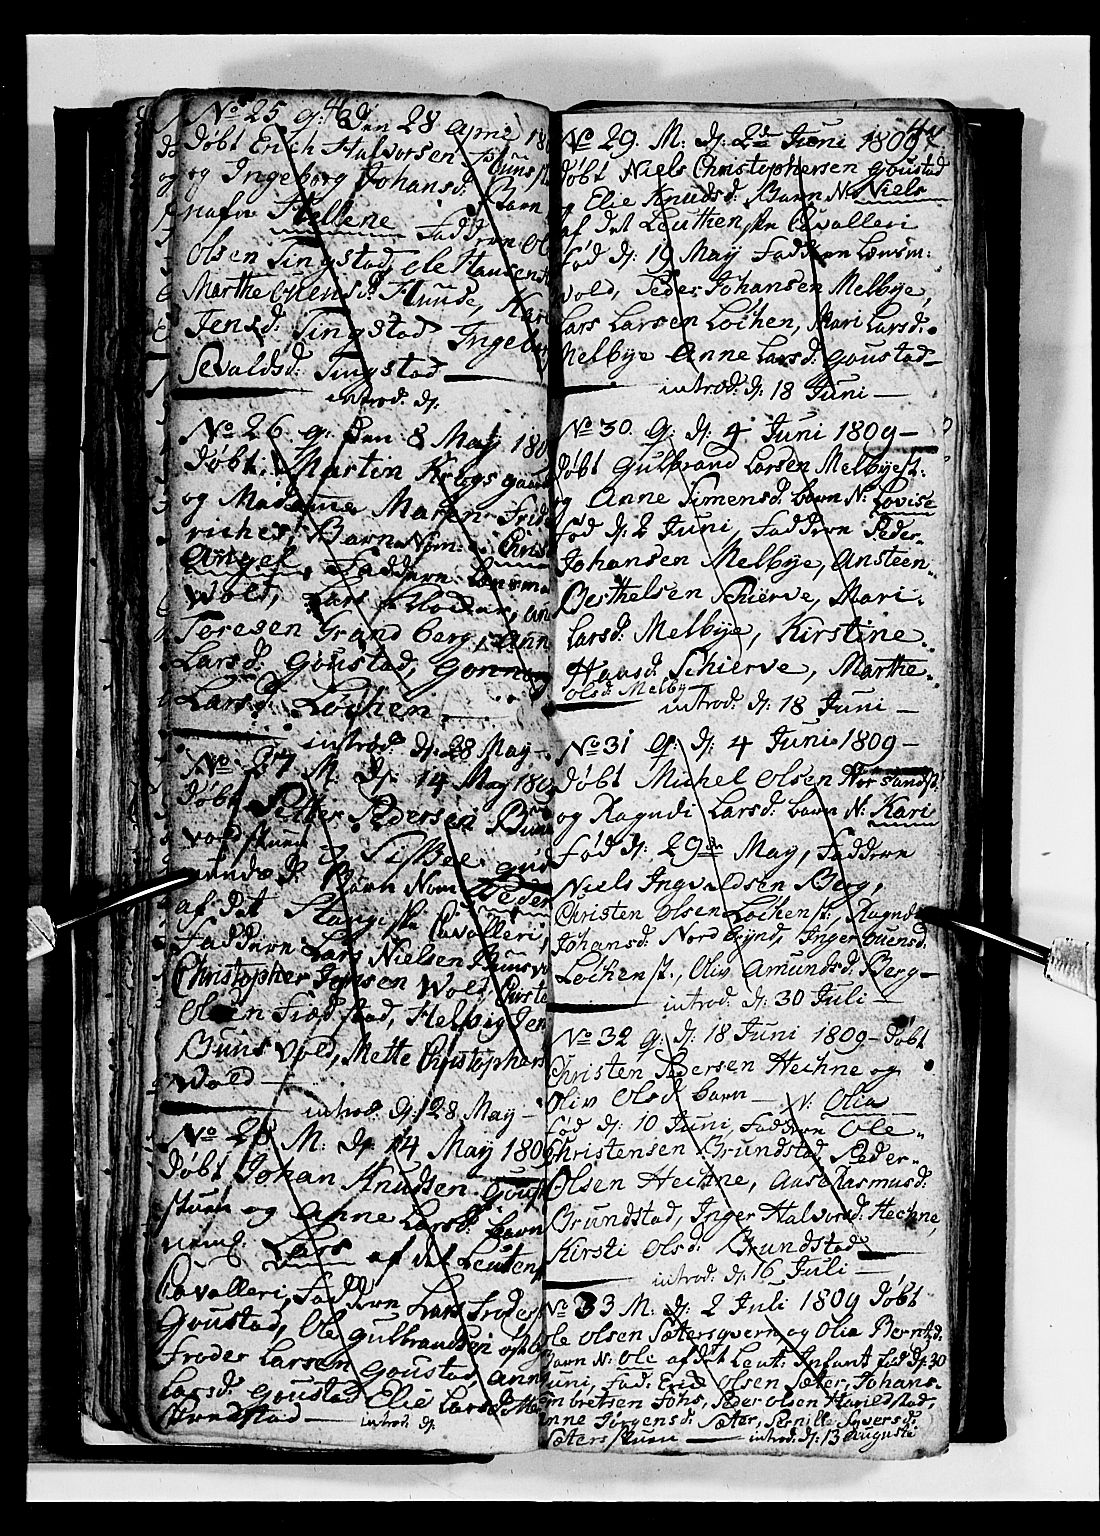 No 25 q: den 28 April 180
døbt Erich Halvorsen
og Ingeborg Johansd: Barn
nafn Hellene Faddern Ole
Olsen Tingstad, Ole Hansen
Marthe Huuse, Kari
Jensd: Tingstad Ingeb
Sevaldsd: Tingstad
introd: dj:
No 26 q: den 8 May 180
døbt Martin Krogs
og Madame Maren Frid
richer Barn Nom: Christ
Angel, Faddern Lensma
Wold, Lars
Toresen Grandberg, Ann
Larsd: Goustad, Gonnor
Larsd: Løchen
introd: dj: 28 May
No 27 M: dj: 14 May 180
døbt Petter Pedersen Buns
voldstuen og Sisbee gud
munds d: Barn Nom: Peder
af det Stangiske Cavalleri,
Faddern Lars Nielsen Bunsvo
Christopher Jensen Wold, Christe
Olsen Fiædstad, Helvig Jen
Buns vold, Mette Christophers
Wold
introd: dj: 28 May
No 28 M: dj 14 May 180
døbt Johan Knudsen Goust
stuen og Anne Larsd: barn
naml: Lars af det Leutens
Cavalleri, Faddern Lars Froders
Goustad, Ole Gulbrandsen
Froder Larsen Goustad Ann
Larsd: Goustad Elie Larsd:
introd: dj:
No 29. M: dj: 2de Juni 1809
døbt Niels Christophersen Goustad
og Elie Knudsd: Barn N: Niels
af det Leuthenske Cavalleri
fød dj: 19 May Faddern Lensm:
Wold, Peder Johansen Melbye,
Lars Larsen Løchen, Mari Larsd:
Melbye Anne Larsd: Goustad
introd: dj: 18 Juni
No 30 q: dj: 4 Juni 1809
døbt Gulbrand Larsen Melbyest:
og Anne Simensd: barn N: Lovise
fød dj: 2 Juni, Faddern Peder
Johansen Melbye, Ansteen
Berthelsen Schierve, Mari
Larsd: Melbye, Kirstine
Hansd: Schierve, Marthe
Olsd: Melby
introd: dj: 18 Juni
No 31 q: dj: 4 Juni 1809
døbt Michel Olsen
og Ragndi Larsd: barn N: Kari
fød dj: 29de May, Faddern
Niels Ingvaldsen Berg,
Christen Olsen Løchenst: Ragnde
Johansd: Nordbynd, Inger
Løchenst:, Oliv Amundsd: Berg
introd: dj: 30 Juli
No 32 q: dj: 18 Juni 1809 døbt
Christen Pedersen Hechne og
Oliv Olsd barn N: Olia
fød dj: 10 Juni, Faddern Ole
Christensen Brundstad, Peder
Olsen Hechne, Ane Rasmusd:
Brundstad, Inger Halvorsd: Hechne,
Kirsti Olsd: Brundstad
introd: dj: 16 Juli
No 33 M: dj: 2 Juli 1809 døbt
Ole Olsen Sætersqvern og Olia Berntsd:
Barn N: Ole af det Leut: Infant fød dj: 30
Juni, Fad: Eric Olsen Sæter, Johans
Peder Olsen
Anne Jørgensd: Sæter, Pernille Syversd:
Sætersstuen introd: dj: 13 Auguste